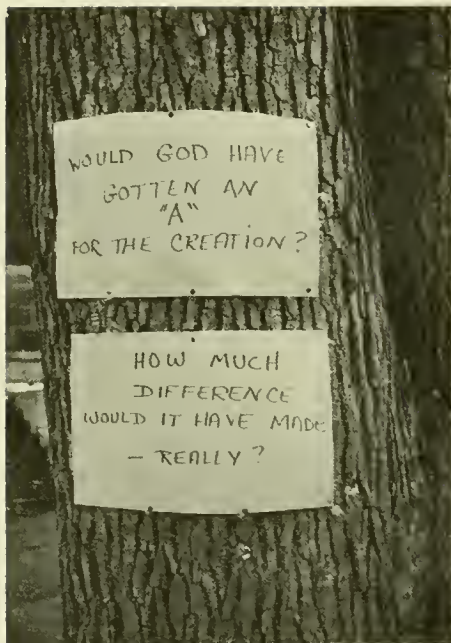 WOULD GOD HAVE
GOTTEN AN
"A"
FOR THE CREATION?
HOW MUCH
DIFFERENCE
WOULD IT HAVE MADE
— REALLY?